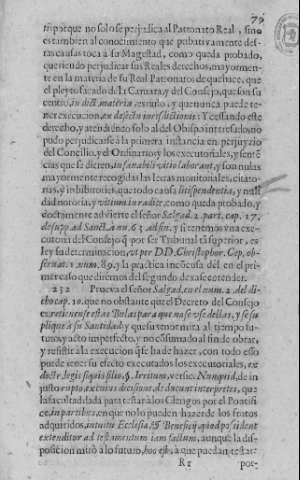 79
tri porque no solo se perjudica al Patronato Real, sino
es tambien al conocimiento que pribativamente des-
tas causas toca à su Magestad, como queda probado,
queriendo perjudicar sus Reales derechos, mayormen-
te en la materia de su Real Patronato de que nace, que
el pleyto sacado de la Camara, y del Consejo, que son su
centro, in dict. materia es nulo, y que nunca puede te-
ner execucion, ex defectu iurisdictionis: Y cessando este
derecho, y atendiendo solo al del Obispo interesado, no
pudo perjudicarse à la primera instancia en perjuyzio
del Concilio, y el Ordinario y los executoriales, y senten-
cias que se dieren, insanabili vitio laborant, y son nulas
mayormente recogidas las letras monitoriales, citato-
rias, y inhibitorias, que todo causa litispendentia, y nuli-
dad notoria, y vitium in radice, como queda probado, y
doctamente advierte el señor Salgad. 2. part. cap. 17.
de supp. ad Sanct. à nu. 63 ad fin, y si tenemos vna exe-
cutoria del Consejo q̃ por ser Tribunal tã superior, es
ley su determinacion, vt per DD. Christophor. Cep. ob-
servat. 1. num. 89. y la practica inconcusa del en el pri-
mer caso que diximos del segundo de vasse entender.
252 Prueva el señor Salgad, en el num. 2. del di-
cho cap. 10. que no obstante que el Decreto del Consejo
es retiense estas Bulas para que no se vse dellas, y se su
plique à su Santidad y que su tenor mira al tiempo fu-
turo, y acto imperfecto, y no cõsumado al fin de obrar,
y resistir à la execucion q̃ se ha de hazer, con todo esso
puede tener su efecto executados los executoriales, ex
doct. leg. si quis filio. §. Irritum, versic. Nunquid, de in-
iusto rupto, ex cuius decisione deducunt interpretes, que
la facultad dada para testar à los Clerigos por el Pontifi-
ce, in partibus, en que no lo pueden hazer de los frutos
adquiridos, intuitu Ecclesiæ, & Beneficij, quod possident
extenditur ad testamentum iam factum, aunque la dis-
posicion mirò à lo futuro, hoc est, à que puedan testar
R 2 por-